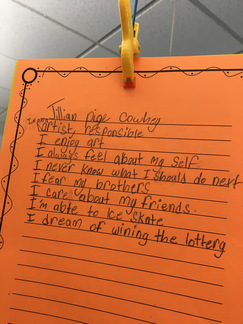 Jillian pige
artist, responsible
I enjoy art
I always feel about my self
I never know what I should do next
I fear my brothers
I care about my friends.
I'm able to Ice skate
I dream of wining the lottery